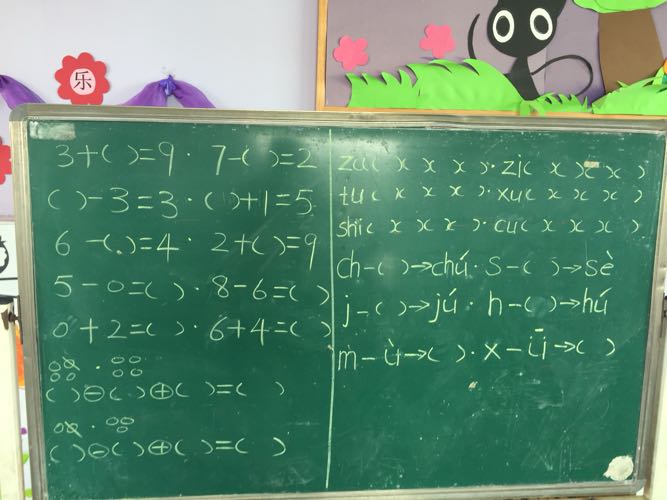 乐
3+( )=9 · 7-( )=2
( )-3=3 · ( )+1=5
6-( )=4 · 2+( )=9
5-0=( ) · 8-6=( )
0+2=( ) · 6+4=( )
( )⊖( )⊕( )=( )
( )⊖( )⊕( )=( )
zu( x x x ) · zi( x x x )
tu( x x x ) · xu( x x x )
shi( x x x ) · cu( x x x )
ch-( )→chú · s-( )→sè
j-( )→jú · h-( )→hú
m-ù→( ) · x-ǖ→( )